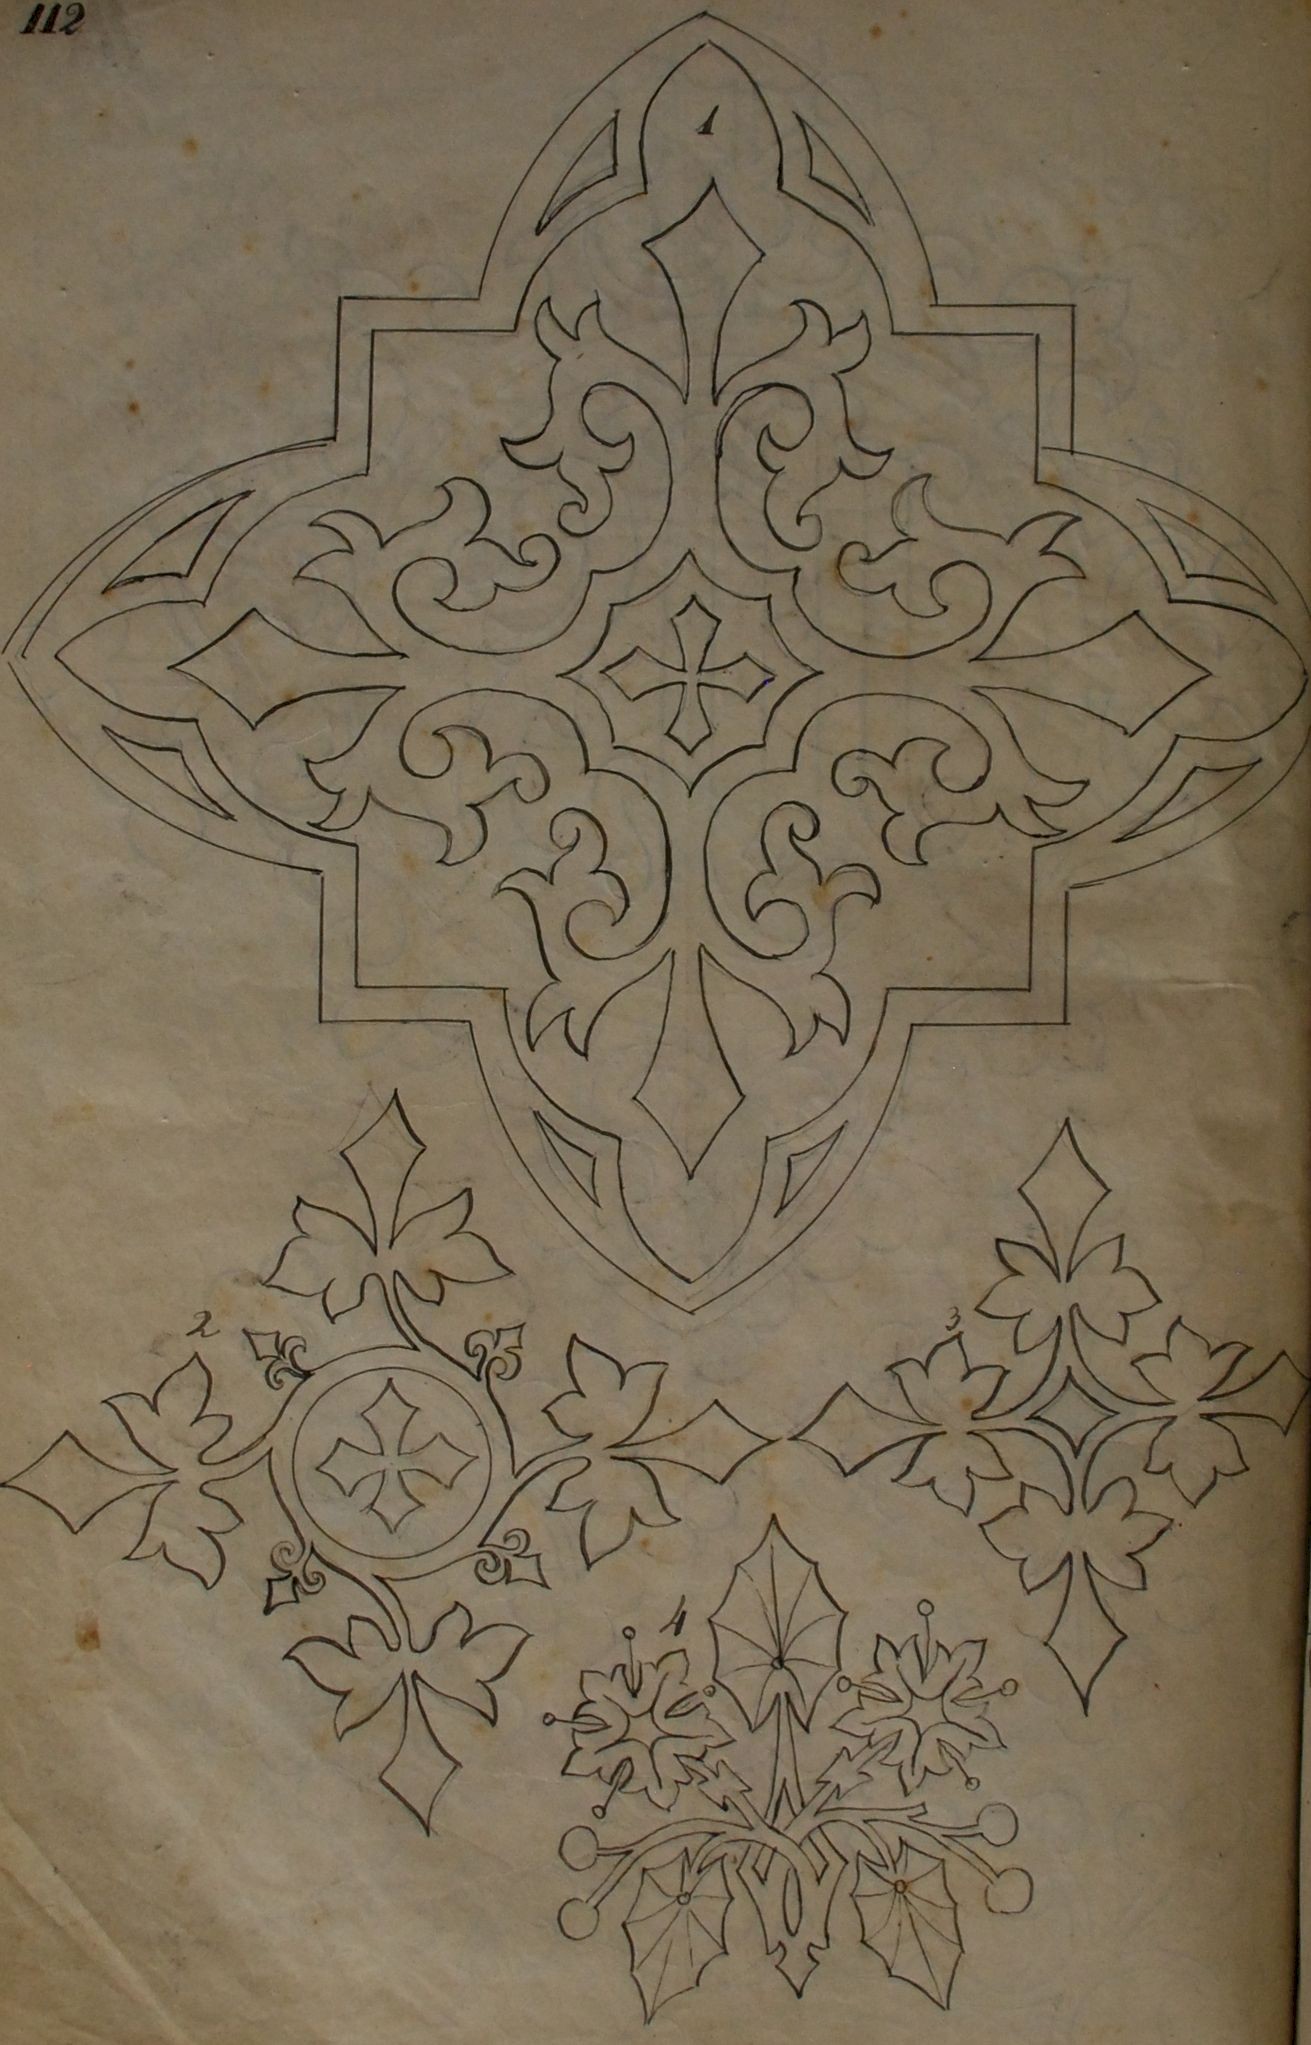 112
1
2
3
4